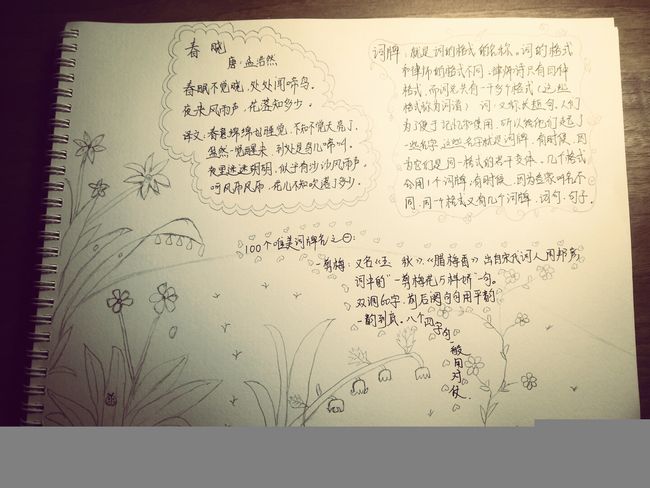 春晓
唐:孟浩然
春眠不觉晓,处处闻啼鸟。
夜来风雨声,花落知多少。
译文:春意绵绵好睡觉,不知不觉天亮了,
猛然一觉醒来,到处是鸟儿啼叫。
夜里迷迷明明,似乎有沙沙风雨声,
呵风雨风雨,花儿不知吹落了多少。
词牌,就是词的格式的名称。词的格式
和律诗的格式不同,律诗只有四种
格式,而词总共有一千多个格式(这些
格式称为词谱) 词,又称长短句,人们
为了便于记忆和使用,所以给它们起了
一些名字,这些名字就是词牌,有时候,因
为它们是同一格式的若干变体,几个格式
合用1个词牌,有时候,因为各家叫名不
同,同一个格式又有几个词牌,词句,句子。
100个唯美词牌名之一:
一剪梅:又名《玉 秋》、《腊梅香》出自宋代词人周邦彦
词中的“一剪梅花万样娇”一句。
双调60字,前后阕句句用平韵
一韵到底。八个四字句
一般用对仗